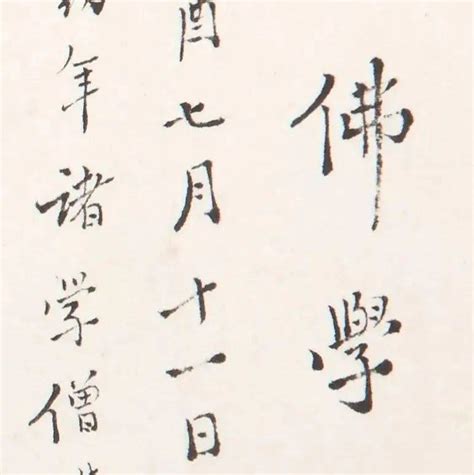 佛學
酉七月十一日
年諸学僧